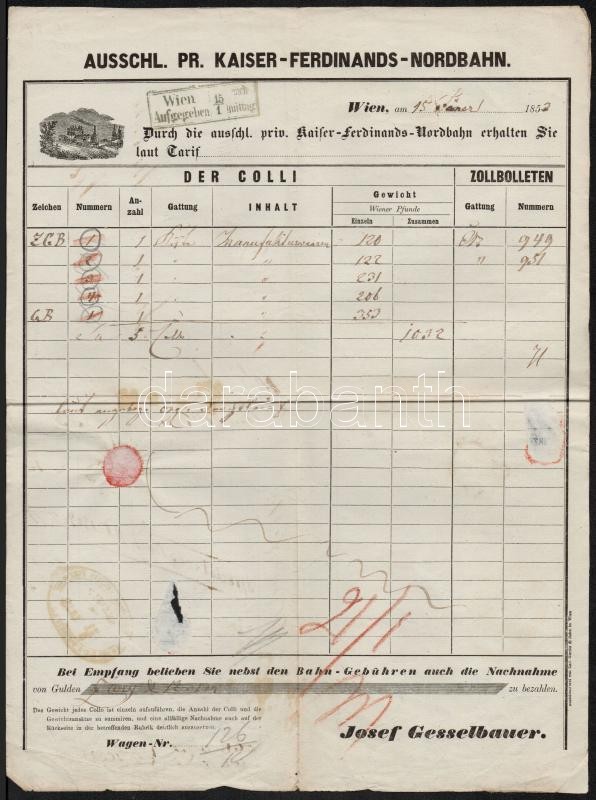 AUSSCHL. PR. KAISER-FERDINANDS-NORDBAHN.
Wien 15
Aufgegeben 1 mittag
Wien, am 15 Jäner 1853
Durch die ausschl. priv. Kaiser-Ferdinands-Nordbahn erhalten Sie
laut Tarif
DER COLLI ZOLLBOLLETEN
Zeichen Nummern An-zahl Gattung INHALT Gewicht Gattung Nummern
Wiener Pfunde
Einzeln Zusammen
ZGB 1 1 Kiste Manufakturwaaren 120 949
2 1 " " 122 " 951
3 1 " " 231
4 1 " " 206
GB 1 1 " " 353
5 Colli " 1032
71
darabanth
21/1
Bei Empfang belieben Sie nebst den Bahn-Gebühren auch die Nachnahme
von Gulden zu bezahlen.
Das Gewicht jedes Collo ist einzeln aufzuführen, die Anzahl der Colli und die
Gewichtsansätze zu summiren, und eine allfällige Nachnahme auch auf der
Rückseite in der betreffenden Rubrik deutlich anzusetzen.
Josef Gesselbauer.
Wagen-Nr. 126